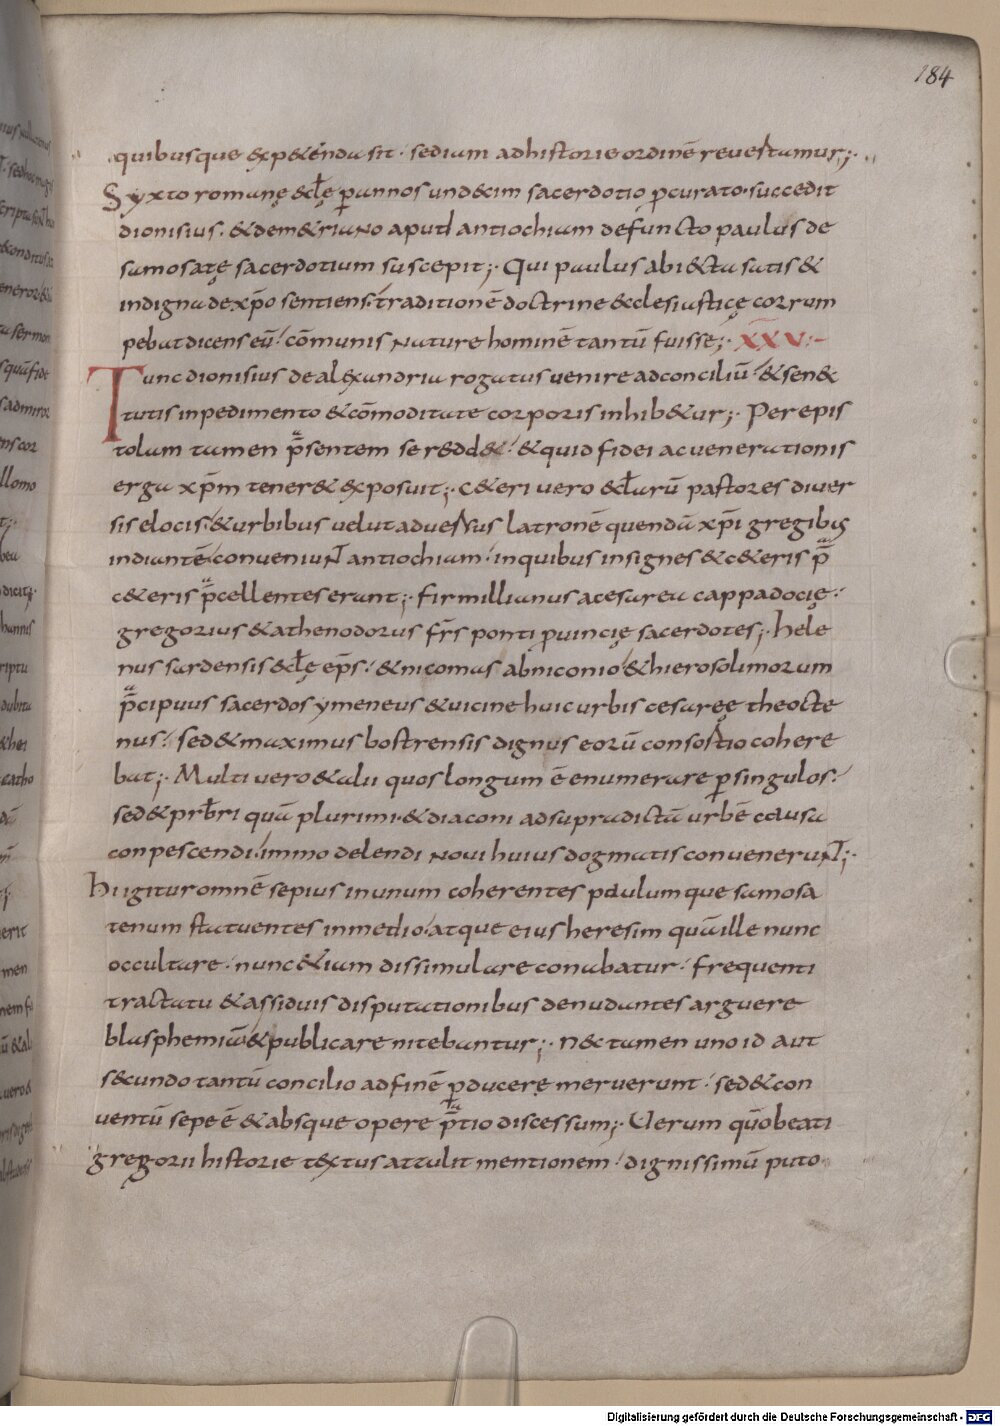 184
quibusque exp&enda sit. sediam adhistorie ordinē reuertamur;.
Syxto romanę &cl̄ę ꝑannos undecim sacerdotio ꝓcurato. succedit
dionisius. &dem&riano aput antiochiam defuncto paulus de
samosatę sacerdotium suscepit;. Qui paulus abi&ta satis &
indigna dexp̄o sentiens. traditionē doctrine &clesiasticę corrum
pebat dicens eū. cōmunis nature hominē tantū fuisse;. XXV:-
Tunc dionisius dealexandria rogatus uenire adconciliū. &sen&
tutis inpedimento &cōmoditate corporis inhib&ur;. Per epis
tolam tamen p̄sentem se redd&. & quid fidei acuenerationis
erga xp̄m tener& exposuit;. c&eri uero &cl̄arū pastores diuer
sis elocis. &urbibus uelut aduersus latronē quendā xp̄i gregibus
indiantē. conueniunt antiochiam. inquibus insignes &c&eris p̄
c&eris p̄cellentes erant;. firmillianus acesarea cappadocię.
gregorius &athenodorus fr̄s ponti ꝓuincię sacerdotes;. hele
nus sardensis &cl̄ę ep̄s. &nicomas abniconio &hierosolimorum
p̄cipuus sacerdos ymeneus &uicine huic urbis cesaręę theocte
nus. sed&maximus bostrensis dignus eorū consortio cohere
bat;. Multi uero &alii quos longum ē enumerare ꝑsingulos.
sed&prb̄ri quā plurimi. &diaconi adsupradictā urbē causa
conpescendi. immo delendi noui huius dogmatis conuenerunt;.
hi igitur omnē sepius inunum coherentes paulumque samosa
tenum statuentes inmedio. atque eius heresim quā ille nunc
occultare. nunc &iam dissimulare conabatur. frequenti
tractatu &assiduis disputationibus denudantes arguere
blasphemiā &publicare nitebantur;. n&c tamen uno id aut
s&cundo tantū concilio adfinē ꝑducere meruerunt. sed&con
uentū sepe ē &absque opere p̄tio discessum;. Uerum quō beati
gregorii historie textus attulit mentionem. dignissimū puto
Digitalisierung gefördert durch die Deutsche Forschungsgemeinschaft - DFG